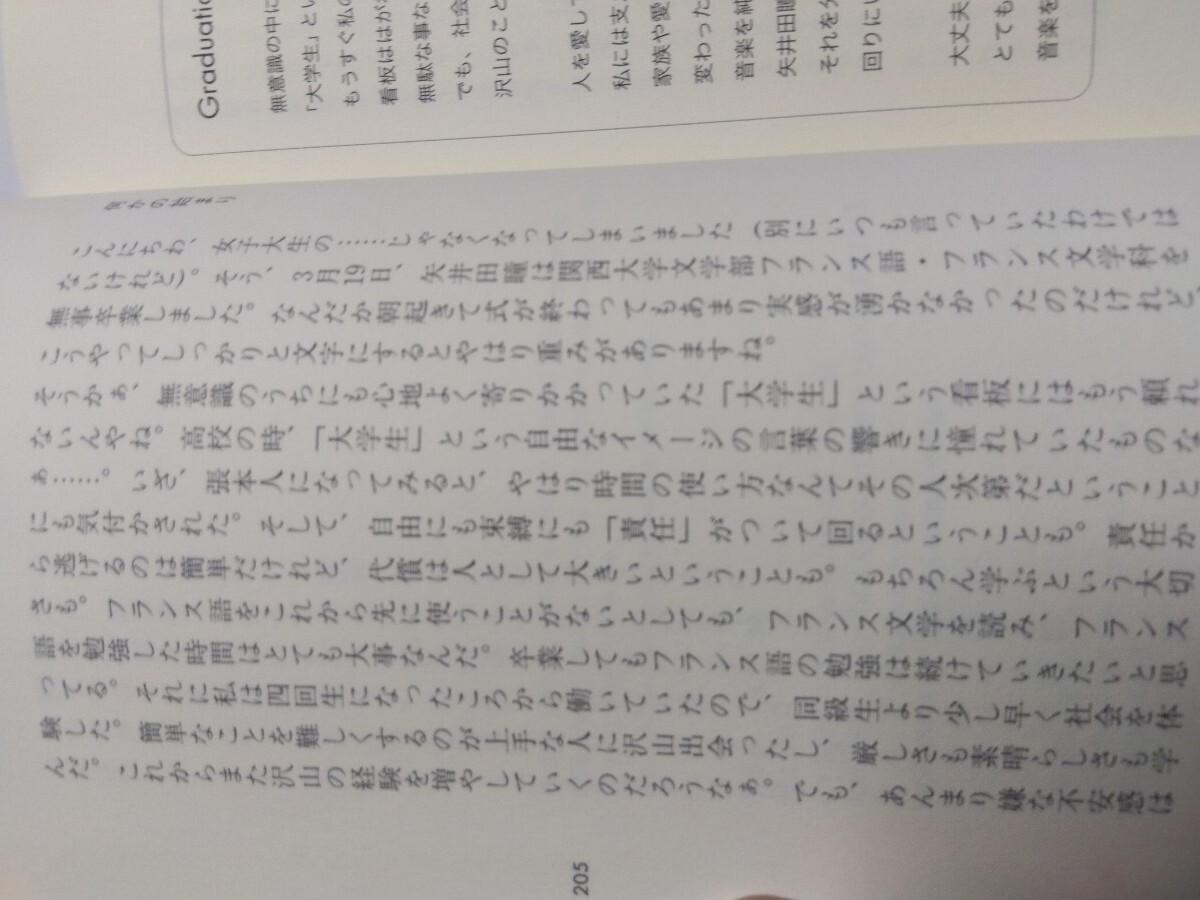 Graduatio
無意識の中に
「大学生」とい
もうすぐ私の
看板ははが
無駄な事な
でも、社会
沢山のこと
人を愛して
私には支え
家族や愛
変わった
音楽を純
矢井田瞳
それを分
回りにい
大丈夫
とても
音楽を
何かの始まり
こんにちわ、女子大生の……じゃなくなってしまいました（別にいつも言っていたわけでは
ないけれど）。そう、3月19日、矢井田瞳は関西大学文学部フランス語・フランス文学科を
無事卒業しました。なんだか朝起きて式が終わってもあまり実感が湧かなかったのだけれど、
こうやってしっかりと文字にするとやはり重みがありますね。
そうかぁ、無意識のうちにも心地よく寄りかかっていた「大学生」という看板にはもう頼れ
ないんやね。高校の時、「大学生」という自由なイメージの言葉の響きに憧れていたものな
ぁ……。いざ、張本人になってみると、やはり時間の使い方なんてその人次第だということ
にも気付かされた。そして、自由にも束縛にも「責任」がついて回るということも。責任か
ら逃げるのは簡単だけれど、代償は人として大きいということも。もちろん学ぶという大切
さも。フランス語をこれから先に使うことがないとしても、フランス文学を読み、フランス
語を勉強した時間はとても大事なんだ。卒業してもフランス語の勉強は続けていきたいと思
ってる。それに私は四回生になったころから働いていたので、同級生より少し早く社会を体
験した。簡単なことを難しくするのが上手な人に沢山出会ったし、厳しさも素晴らしさも学
んだ。これからまた沢山の経験を増やしていくのだろうなぁ。でも、あんまり嫌な不安感は
205